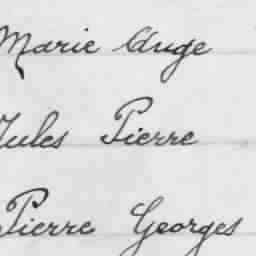 Marie Ange
Jules Pierre
Pierre Georges